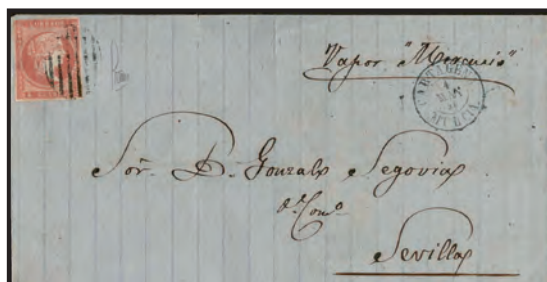 Vapor "Mercurio"
CARTAGENA
MURCIA
Sor. D. Gonzalo Segovia
Sevilla